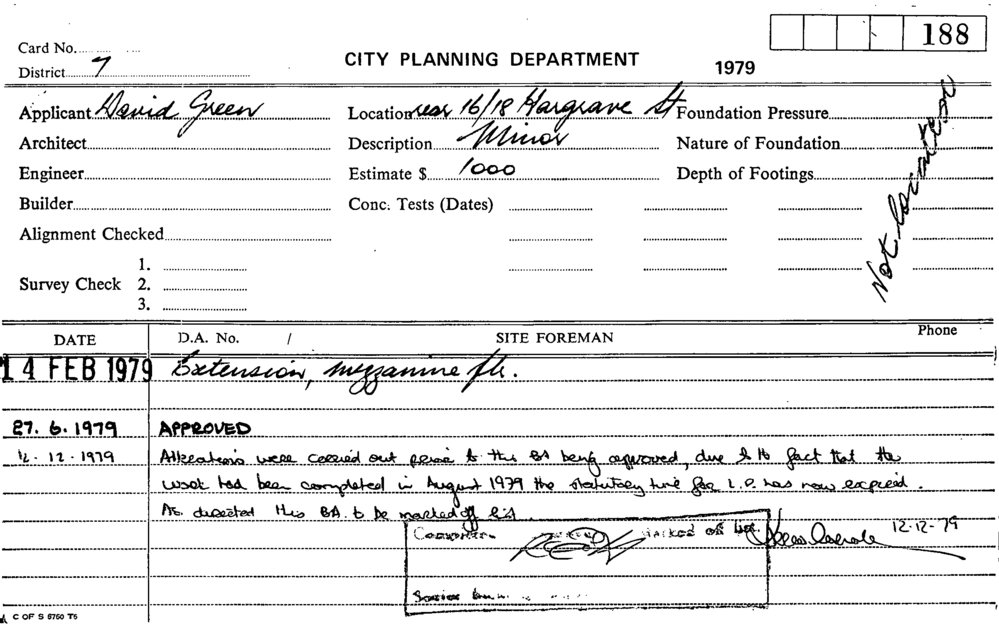 188
Card No.
CITY PLANNING DEPARTMENT
1979
District 7
Applicant David Green
Location rear 16/18 Hargrave St
Foundation Pressure
Architect
Description Minor
Nature of Foundation
Engineer
Estimate $ 1000
Depth of Footings
Builder
Conc. Tests (Dates)
Not located
Alignment Checked
1.
Survey Check 2.
3.
DATE
D.A. No. /
SITE FOREMAN
Phone
14 FEB 1979 Extension, mezzanine flr.
27. 6. 1979 APPROVED
12. 12. 1979 Alterations were carried out prior to this BA being approved, due to the fact that the
work had been completed in August 1979 the statutory time for L.P. has now expired.
As directed this BA. to be marked off list.
marked off list.
12-12-79
C OF S 5750 T5